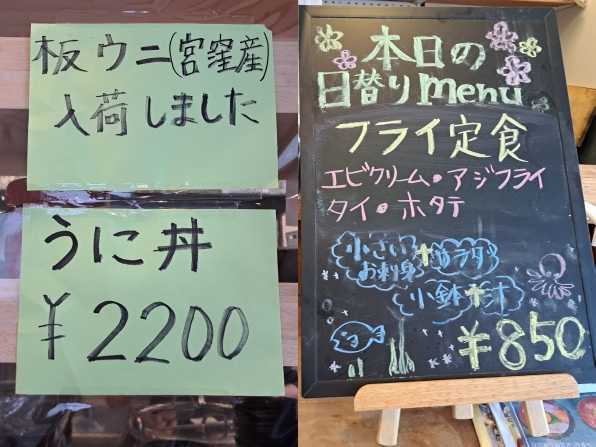 板ウニ(宮窪産)
入荷しました
うに丼
¥2200
本日の
日替りmenu
フライ定食
エビクリーム・アジフライ
タイ・ホタテ
小さい
お刺身
サラダ
小鉢
¥850